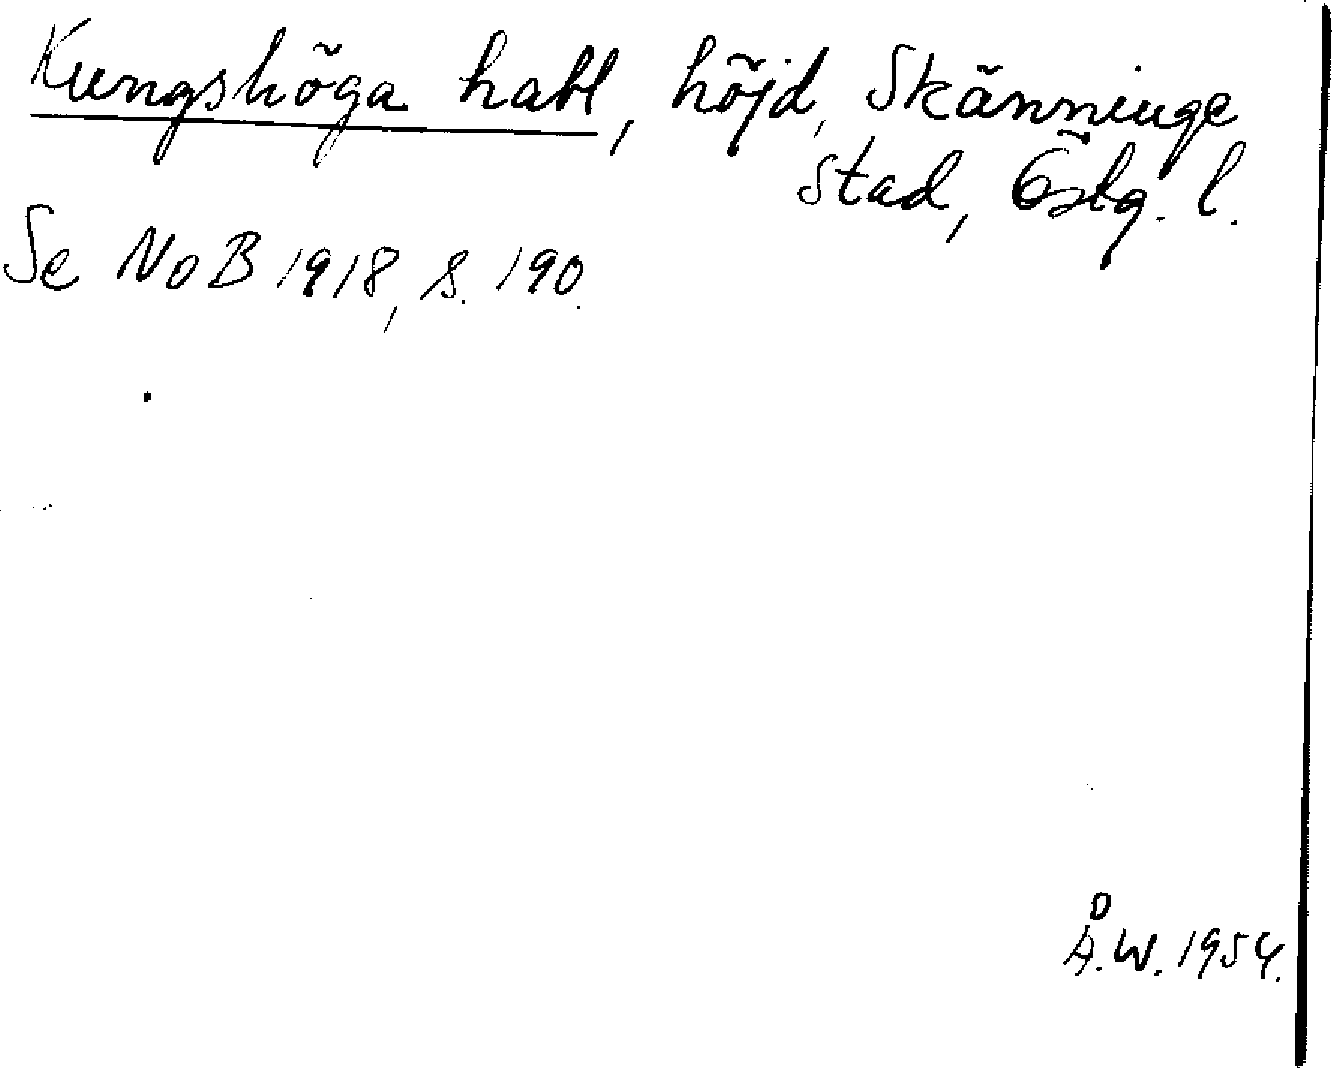 Kungshöga habl, höjd, Skänninge
stad, Östg. l.
Se NoB 1918, s. 190.
Å.W. 1954.